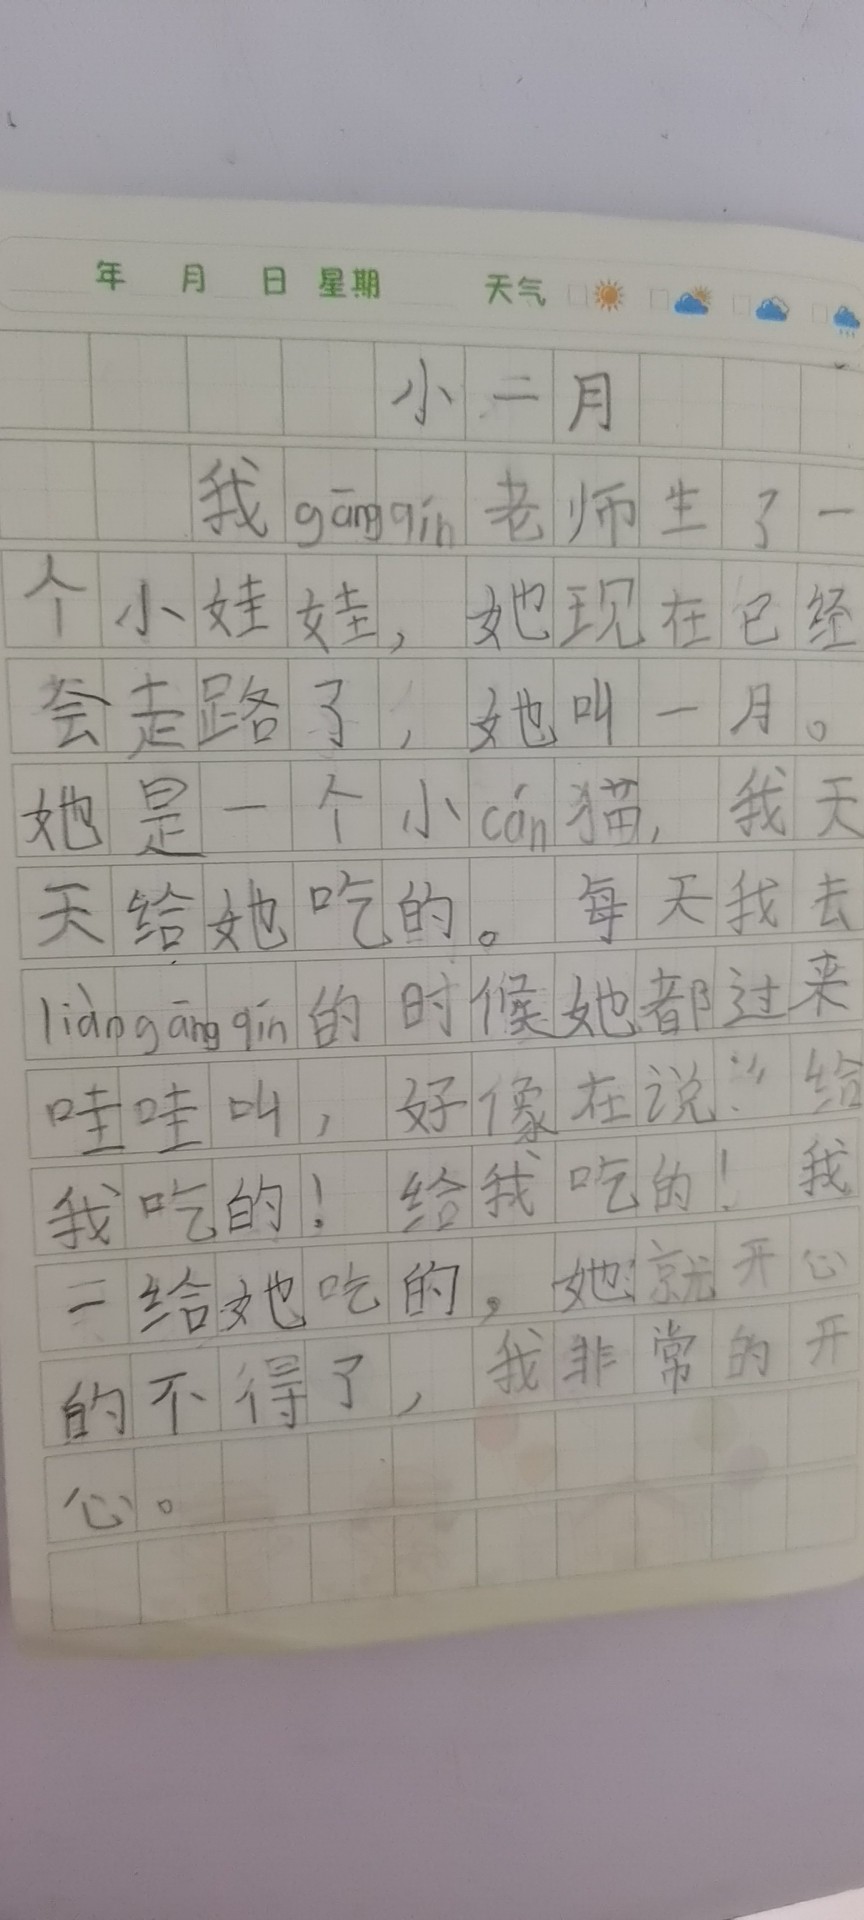 年 月 日 星期 天气
小二月
我gāngqín老师生了一
个小娃娃，她现在已经
会走路了，她叫一月。
她是一个小cán猫，我天
天给她吃的。每天我去
liàngāngqín的时候她都过来
哇哇叫，好像在说：“给
我吃的！给我吃的！我
二给她吃的，她就开心
的不得了，我非常的开
心。